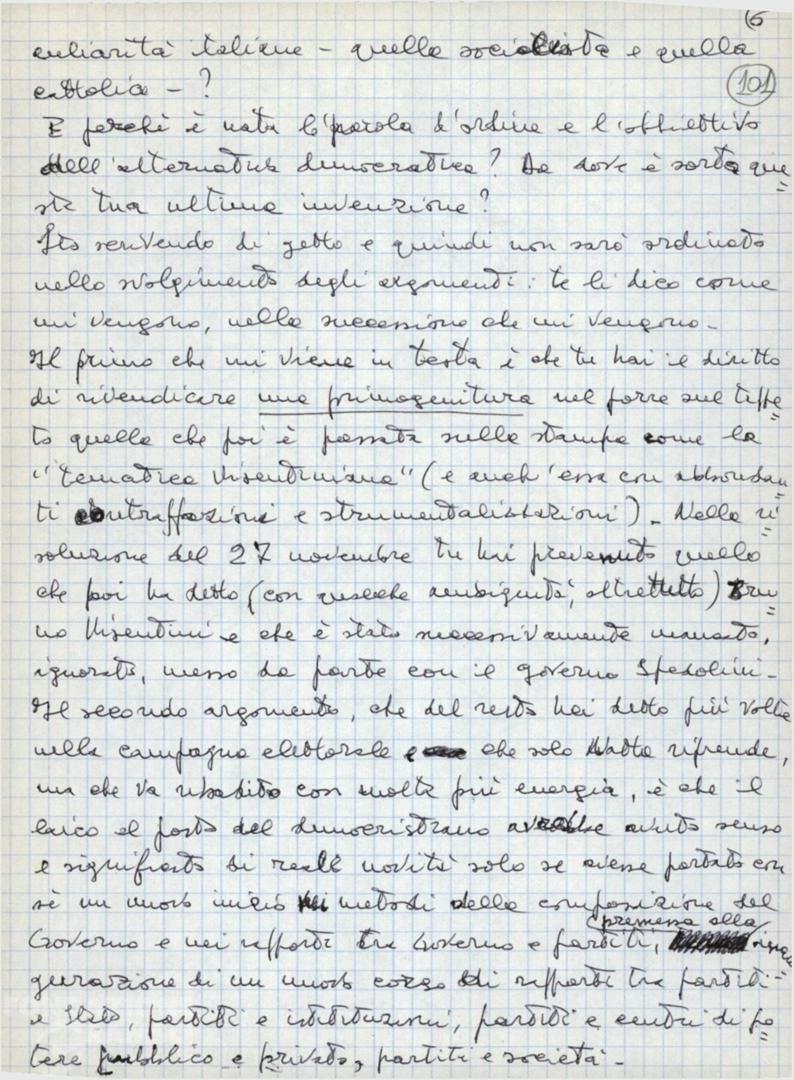 (6
culiarità italiane – quella socialista e quella
cattolica – ?
101
E perché è nata la parola d'ordine e l'obbiettivo
dell'alternativa democratica? Da dove è sorta que=
sta tua ultima invenzione?
Sto scrivendo di getto e quindi non sarò ordinato
nello svolgimento degli argomenti: te li dico come
mi vengono, nella successione che mi vengono –
Il primo che mi viene in testa è che tu hai il diritto
di rivendicare una primogenitura nel porre sul tappe=
to quella che poi è passata sulla stampa come la
"tematica visentiniana" (e anch'essa con abbondan=
ti contraffazioni e strumentalizzazioni). Nella ri=
soluzione del 27 novembre tu hai prevenuto quello
che poi ha detto (con qualche ambiguità, oltretutto) Bru=
no Visentini e che è stato successivamente
ignorato, messo da parte con il governo Spadolini –
Il secondo argomento, che del resto hai detto più volte
nella campagna elettorale che solo Natta riprende,
ma che va ribadito con molta più energia, è che il
laico al posto del democristiano avrebbe avuto senso
e significato di reale novità solo se avesse portato con
sé un nuovo inizio nei metodi della composizione del
Governo e nei rapporti tra Governo e partiti, premessa alla inau=
gurazione di un nuovo corso di rapporti tra partiti
e Stato, partiti e istituzioni, partiti e centri di po=
tere pubblico e privato, partiti e società –